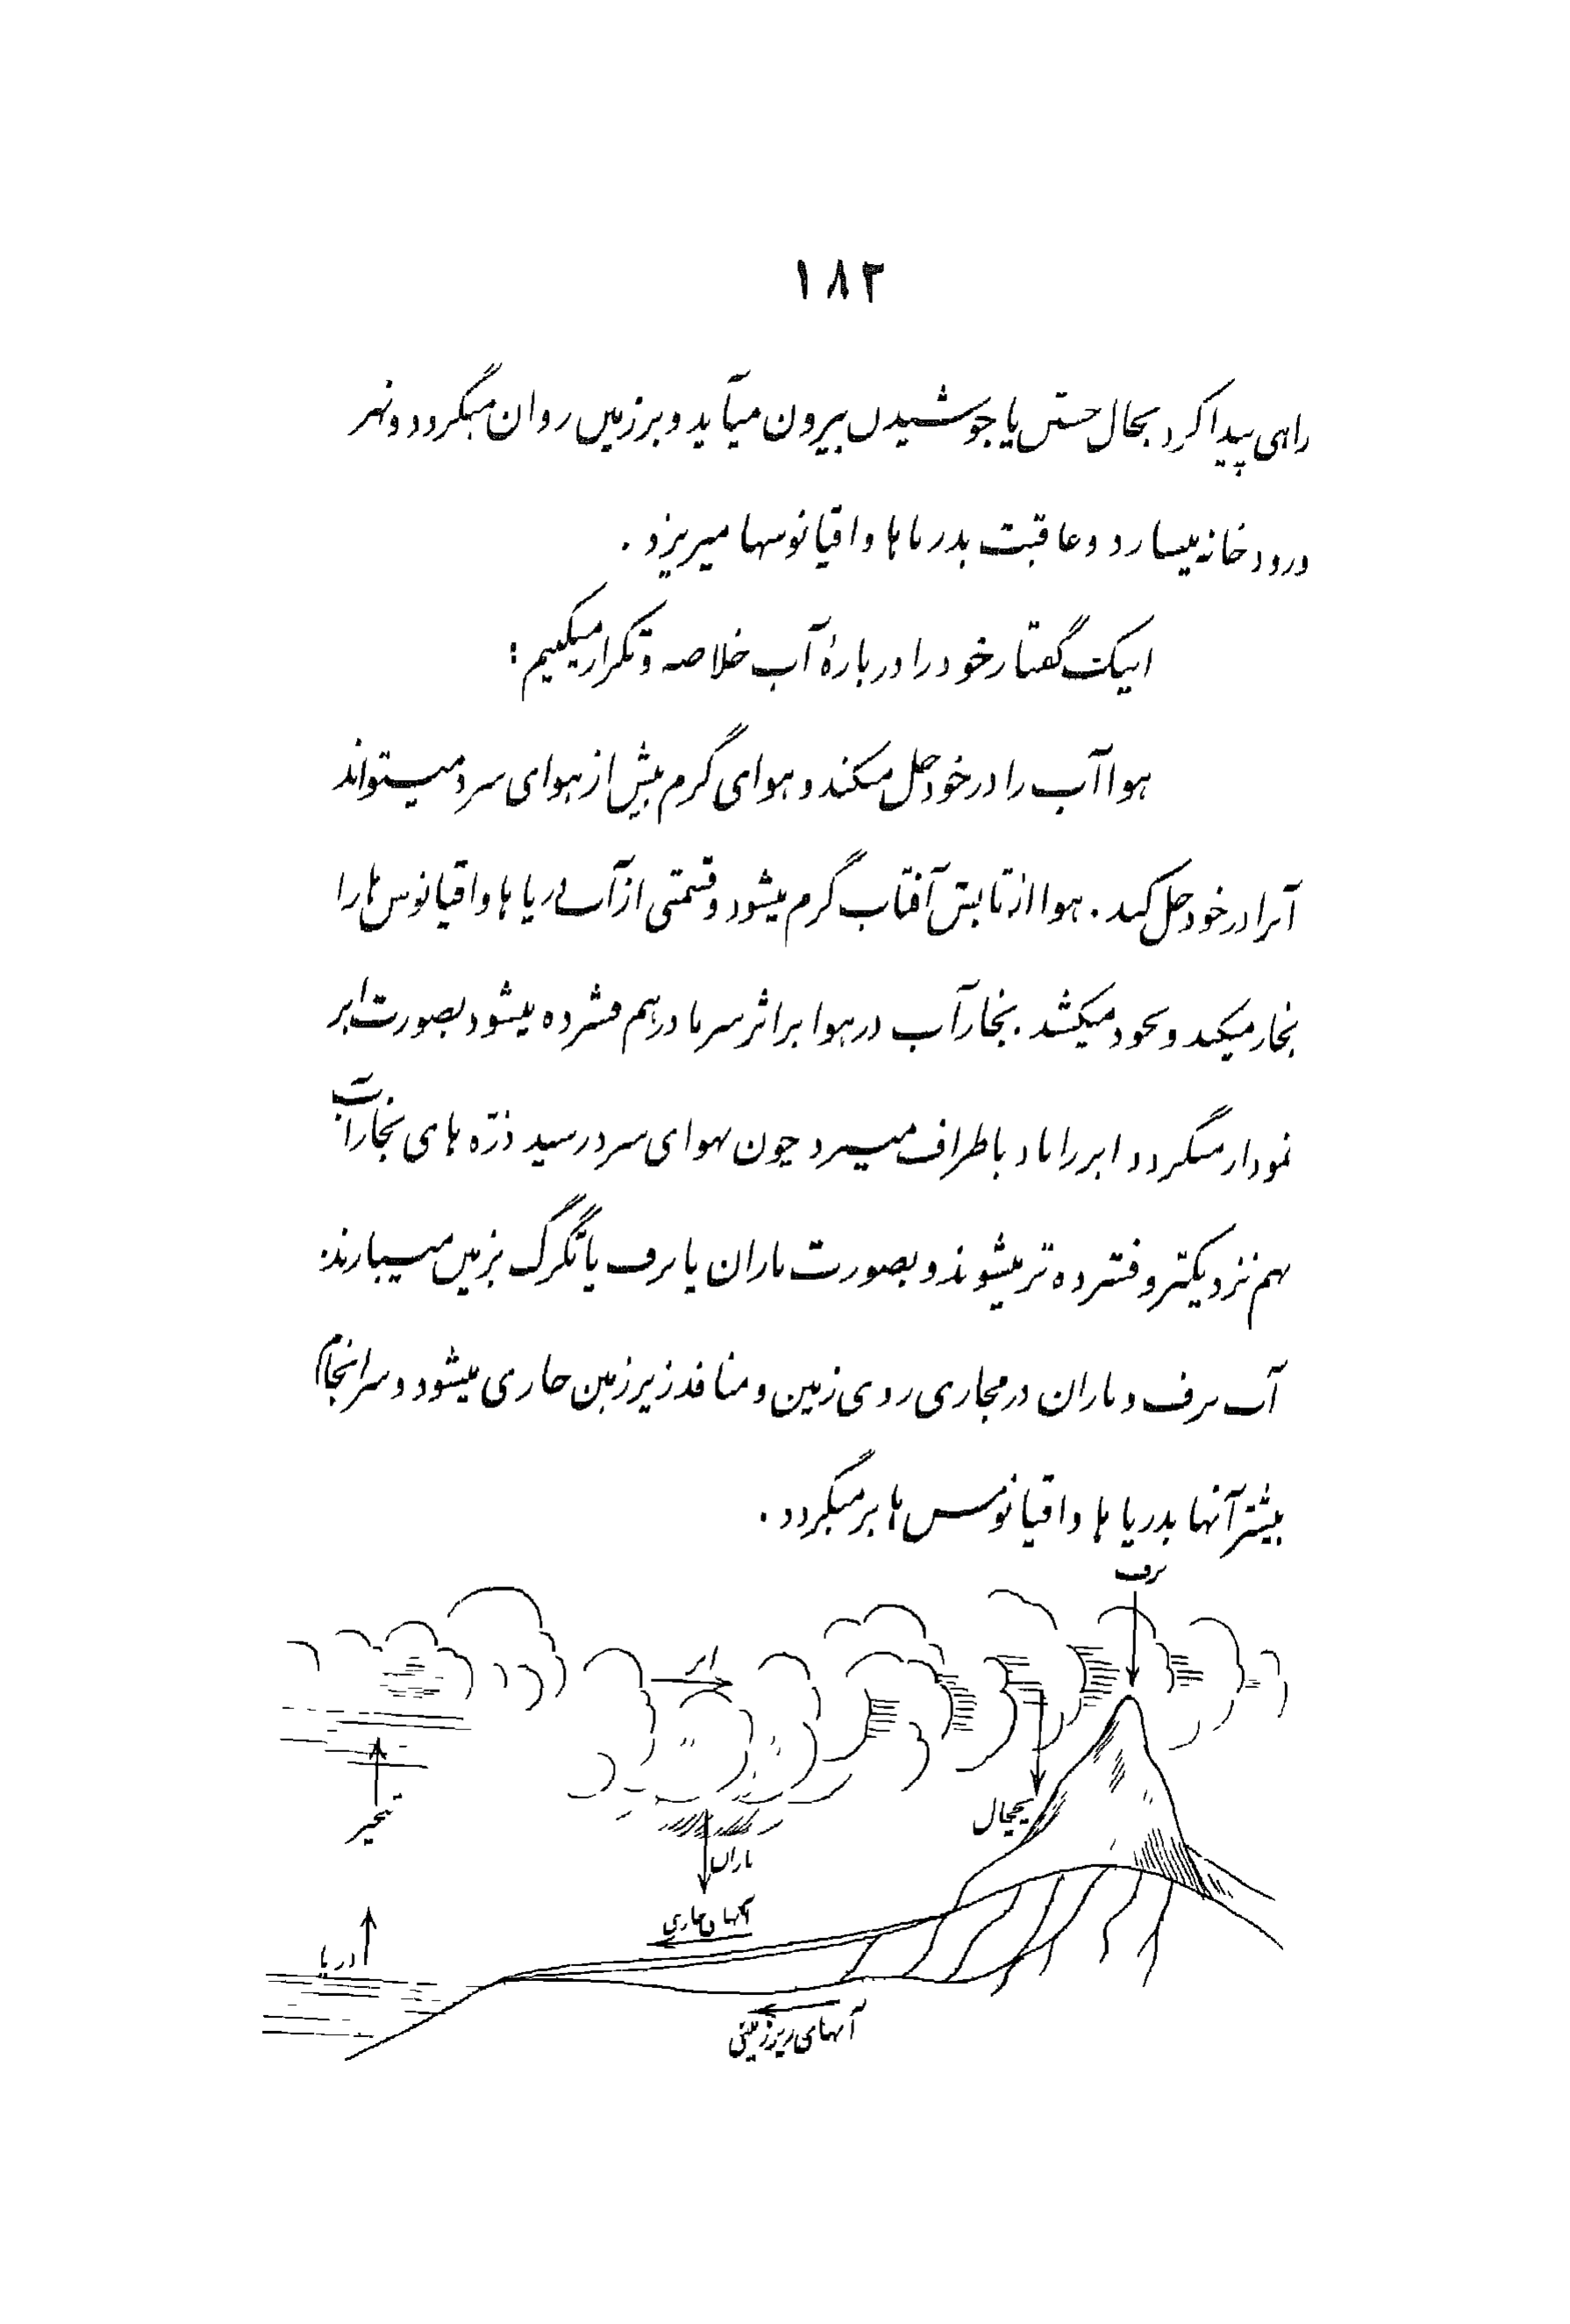 ۱۸۲
راهی پیدا کرد بحال جستن یا جوشیدن بیرون میآید و بر زمین روان میگردد و نهر
و رودخانه میسازد و عاقبت بدریاها و اقیانوسها میریزد .
اینک گفتار خود را دربارهٔ آب خلاصه و تکرار میکنیم :
هوا آب را در خود حل میکند و هوای گرم بیش از هوای سرد میتواند
آنرا در خود حل کند . هوا از تابش آفتاب گرم میشود و قسمتی از آب دریاها و اقیانوس ها را
بخار میکند و بخود میکشد . بخار آب در هوا بر اثر سرما درهم فشرده میشود بصورت ابر
نمودار میگردد ابر را باد باطراف میبرد چون بهوای سرد رسید ذرّه های بخار آب
بهم نزدیکتر و فشرده تر میشوند و بصورت باران یا برف یا تگرگ بزمین میبارند
آب برف و باران در مجاری روی زمین و منافذ زیر زمین جاری میشود و سرانجام
بیشتر آنها بدریا ها و اقیانوس ها برمیگردد .
برف
ابر
یخچال
تبخیر
باران
آبهای جاری
دریا
آبهای زیرزمینی